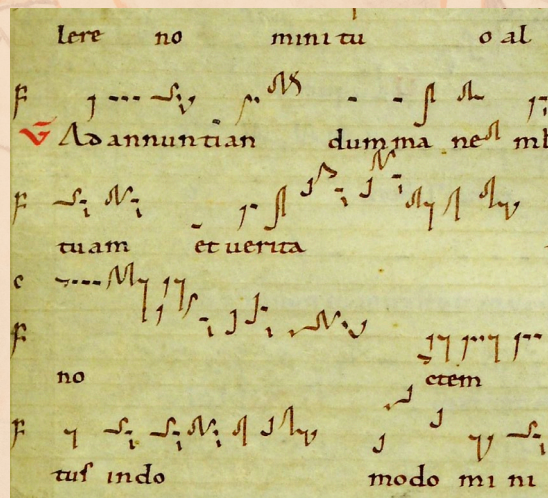 lere no mini tu o al
F
V Ad annuntian dum ma ne mi
F
tuam et verita
c
F
no ctem
F
tus indo modo mi ni